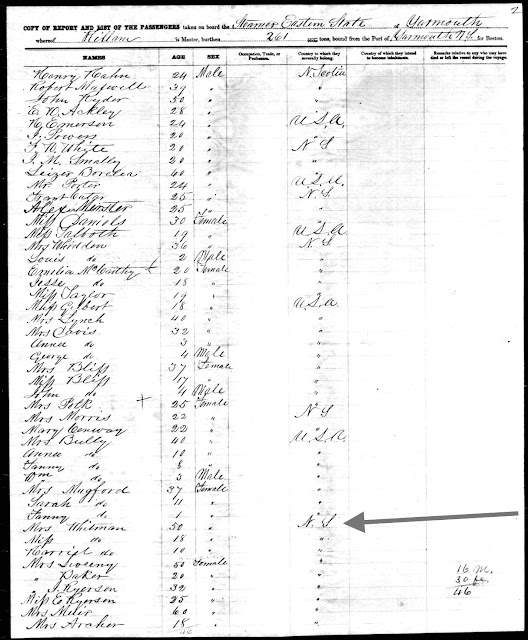 2
COPY OF REPORT AND LIST OF THE PASSENGERS taken on board the Steamer Eastern State of Yarmouth
whereof Killam is Master, burthen 261 tons, bound from the Port of Yarmouth N.S. for Boston.
NAMES AGE SEX Occupation, Trade, or Profession. Country to which they severally belong. Country to which they intend to become inhabitants. Remarks relative to any who may have died or left the vessel during the voyage.
Henry Hahn 24 Male N. Scotia
Robert 39 "
John Ryder 50 " "
E. W. Ackley 28 " "
Emerson 24 " U.S.A.
J. Powers 20 " "
J. W. Whyte 20 " N S
J. M. Smally 20 " "
40 " "
Mr. Porter 24 " U.S.A.
25 " N.S.
Alex 25 " "
Miss Daniels 30 Female "
Miss Talboth 19 " U.S.A
Mrs Whidden 36 " N S
Louis do 2 Male "
McCarthy 20 Female "
Jesse do 18 " "
Miss Taylor 19 " "
Miss Gilbert 18 " U.S.A.
Mrs Lynch 40 " "
Mrs Davis 32 " "
Annie do 3 " "
George do 4 Male "
Mrs Bliss 37 Female "
Miss Bliss 17 " "
John do 4 Male "
Mrs Polk + 25 Female "
Mrs Morris 22 " N S
Mary Conway 22 " "
Mrs Bully 40 " U.S.A.
Anna do 10 " "
Fanny do 8 " "
Wm do 3 Male "
Mrs Mugford 37 Female "
Sarah do 11 " "
Fanny do 1 " "
Mrs Whitman 50 " N. S
Miss do 18 " "
Harriet do 10 " "
Mrs Sweeny 50 Female "
" Baker 20 " " 16 M.
" J. Ryerson 32 " " 30 fe
Miss E. Ryerson 25 " " 46
Mrs Muir 60 " "
Mrs Archer 18 " "
46